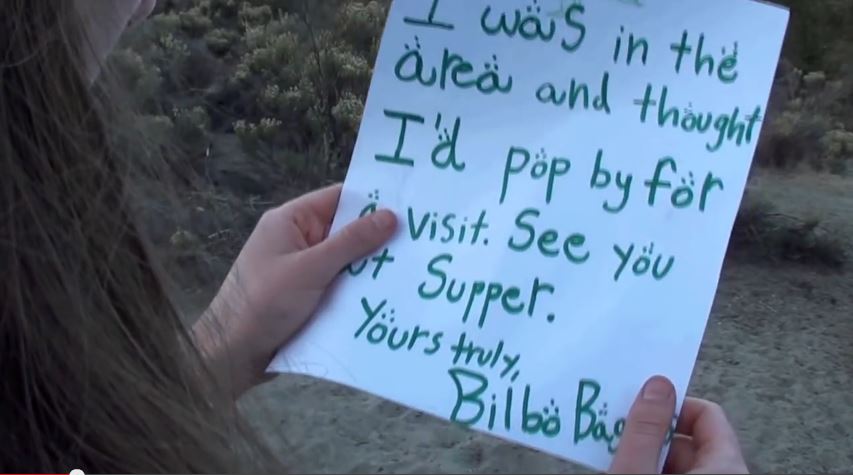 I wäs in thë
äreä and thöught
I'd pöp by för
ä visit. See yöu
Supper.
Yöurs truly,
Bilbö